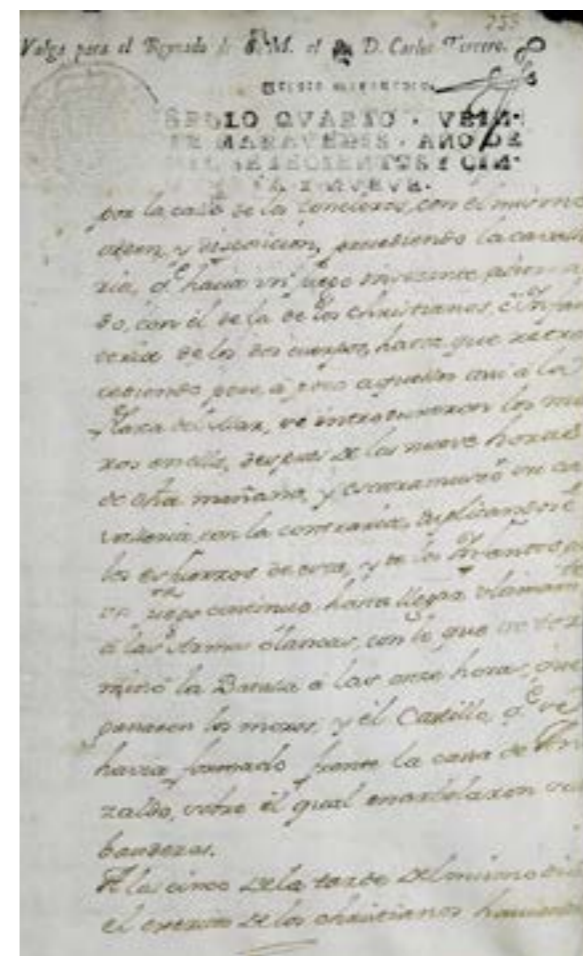 253
Valga para el Reynado de S. M. el Sr. D. Carlos Tercero.
SELLO QVARTO · VEIN-
TE MARAVEDIS · AÑO DE
MIL SETECIENTOS Y CIN-
QVENTA Y NUEVE.
por la calle de los Concleros, con el mismo
orden, y disposición, precediendo la cavalle
ria, q.e hacia un fuego
do, con el de la de los christianos, è Infan
teria de los dos cuerpos, hasta que retro
cediendo poco, à poco aquellos asi à la
Plaza del Mar, se introduxeron los mo
ros en ella, despues de las nueve horas
de dha mañana, y escaramuzò su ca
valleria con la contraria, duplicandose
los esfuerzos de esta, y de los Infantes
un fuego continuo hasta llegar
à las Armas blancas, con lo que se ter
minò la Batalla à las onze horas, que
ganaron los moros, y el Castillo, q.e se
havia formado frente la casa de
zaldo, sobre el qual enarbolaron sus
banderas.
A las cinco de la tarde del mismo dia
el exercito de los christianos haviendo